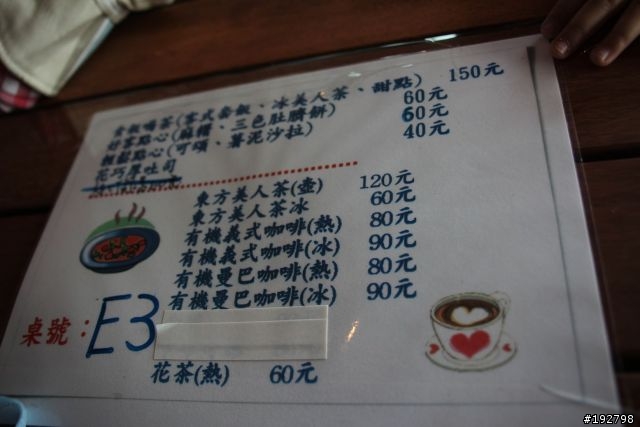 食飯喝茶(客式套飯、冰美人茶、甜點) 150元
好客點心(麻糬、三色肚臍餅) 60元
輕鬆點心(可頌、薯泥沙拉) 60元
花巧厚吐司 40元
東方美人茶(壺) 120元
東方美人茶冰 60元
有機義式咖啡(熱) 80元
有機義式咖啡(冰) 90元
有機曼巴咖啡(熱) 80元
有機曼巴咖啡(冰) 90元
桌號：E3
花茶(熱) 60元
#192798